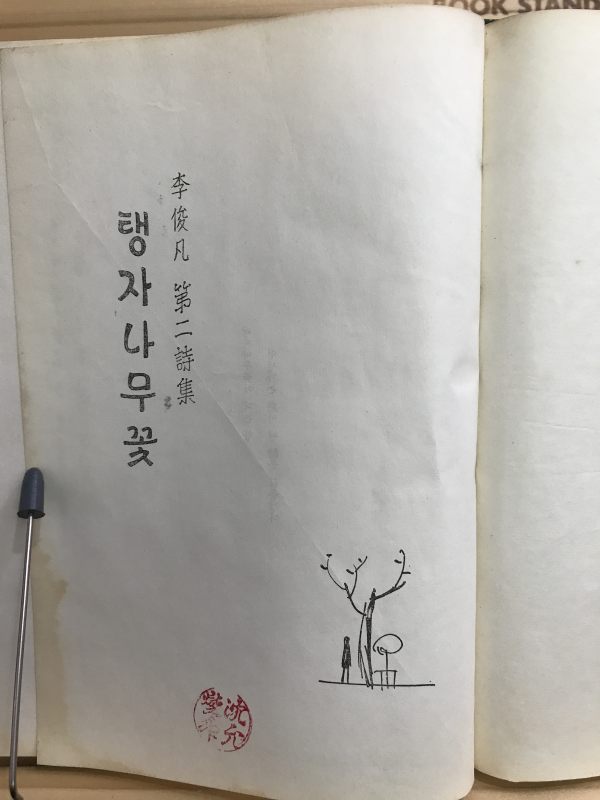 BOOK STAND
李俊凡 第二詩集
탱자나무꽃